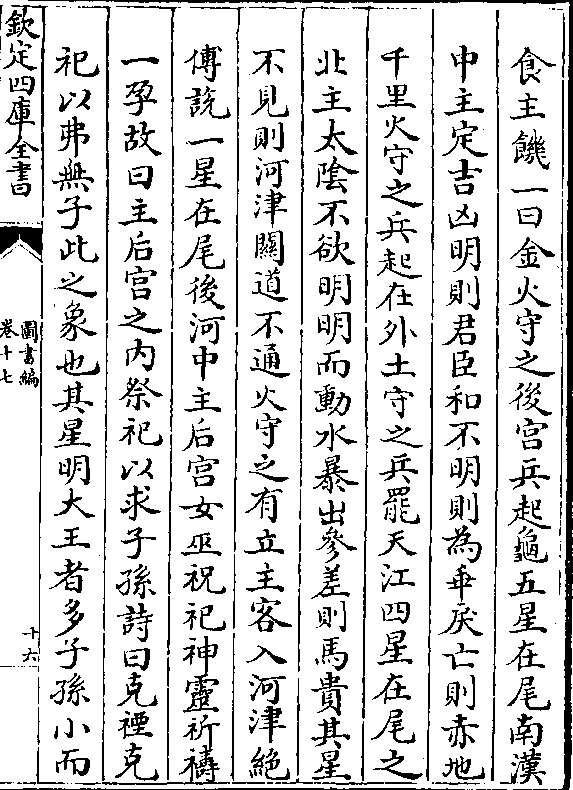 食主饑一曰金火守之後宫兵起龜五星在尾南漢
中主定吉凶明則君臣和不明則為乖戾亡則赤地
千里火守之兵起在外土守之兵罷天江四星在尾之
北主太陰不欲明明而動水暴出參差則馬貴其星
不見則河津關道不通火守之有立主客入河津絕
傅說一星在尾後河中主后宫女巫祝祀神靈祈禱
一孕故曰主后宫之内祭祀以求子孫詩曰克禋克
祀以弗無子此之象也其星明大王者多子孫小而
欽定四庫全書
圖書編
卷十七
十六